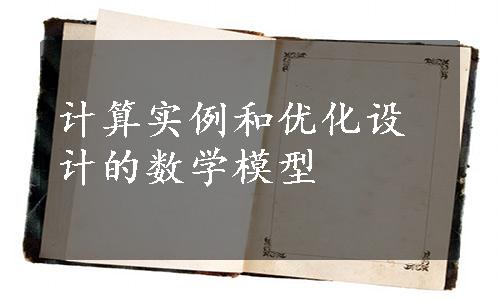 计算实例和优化设
计的数学模型